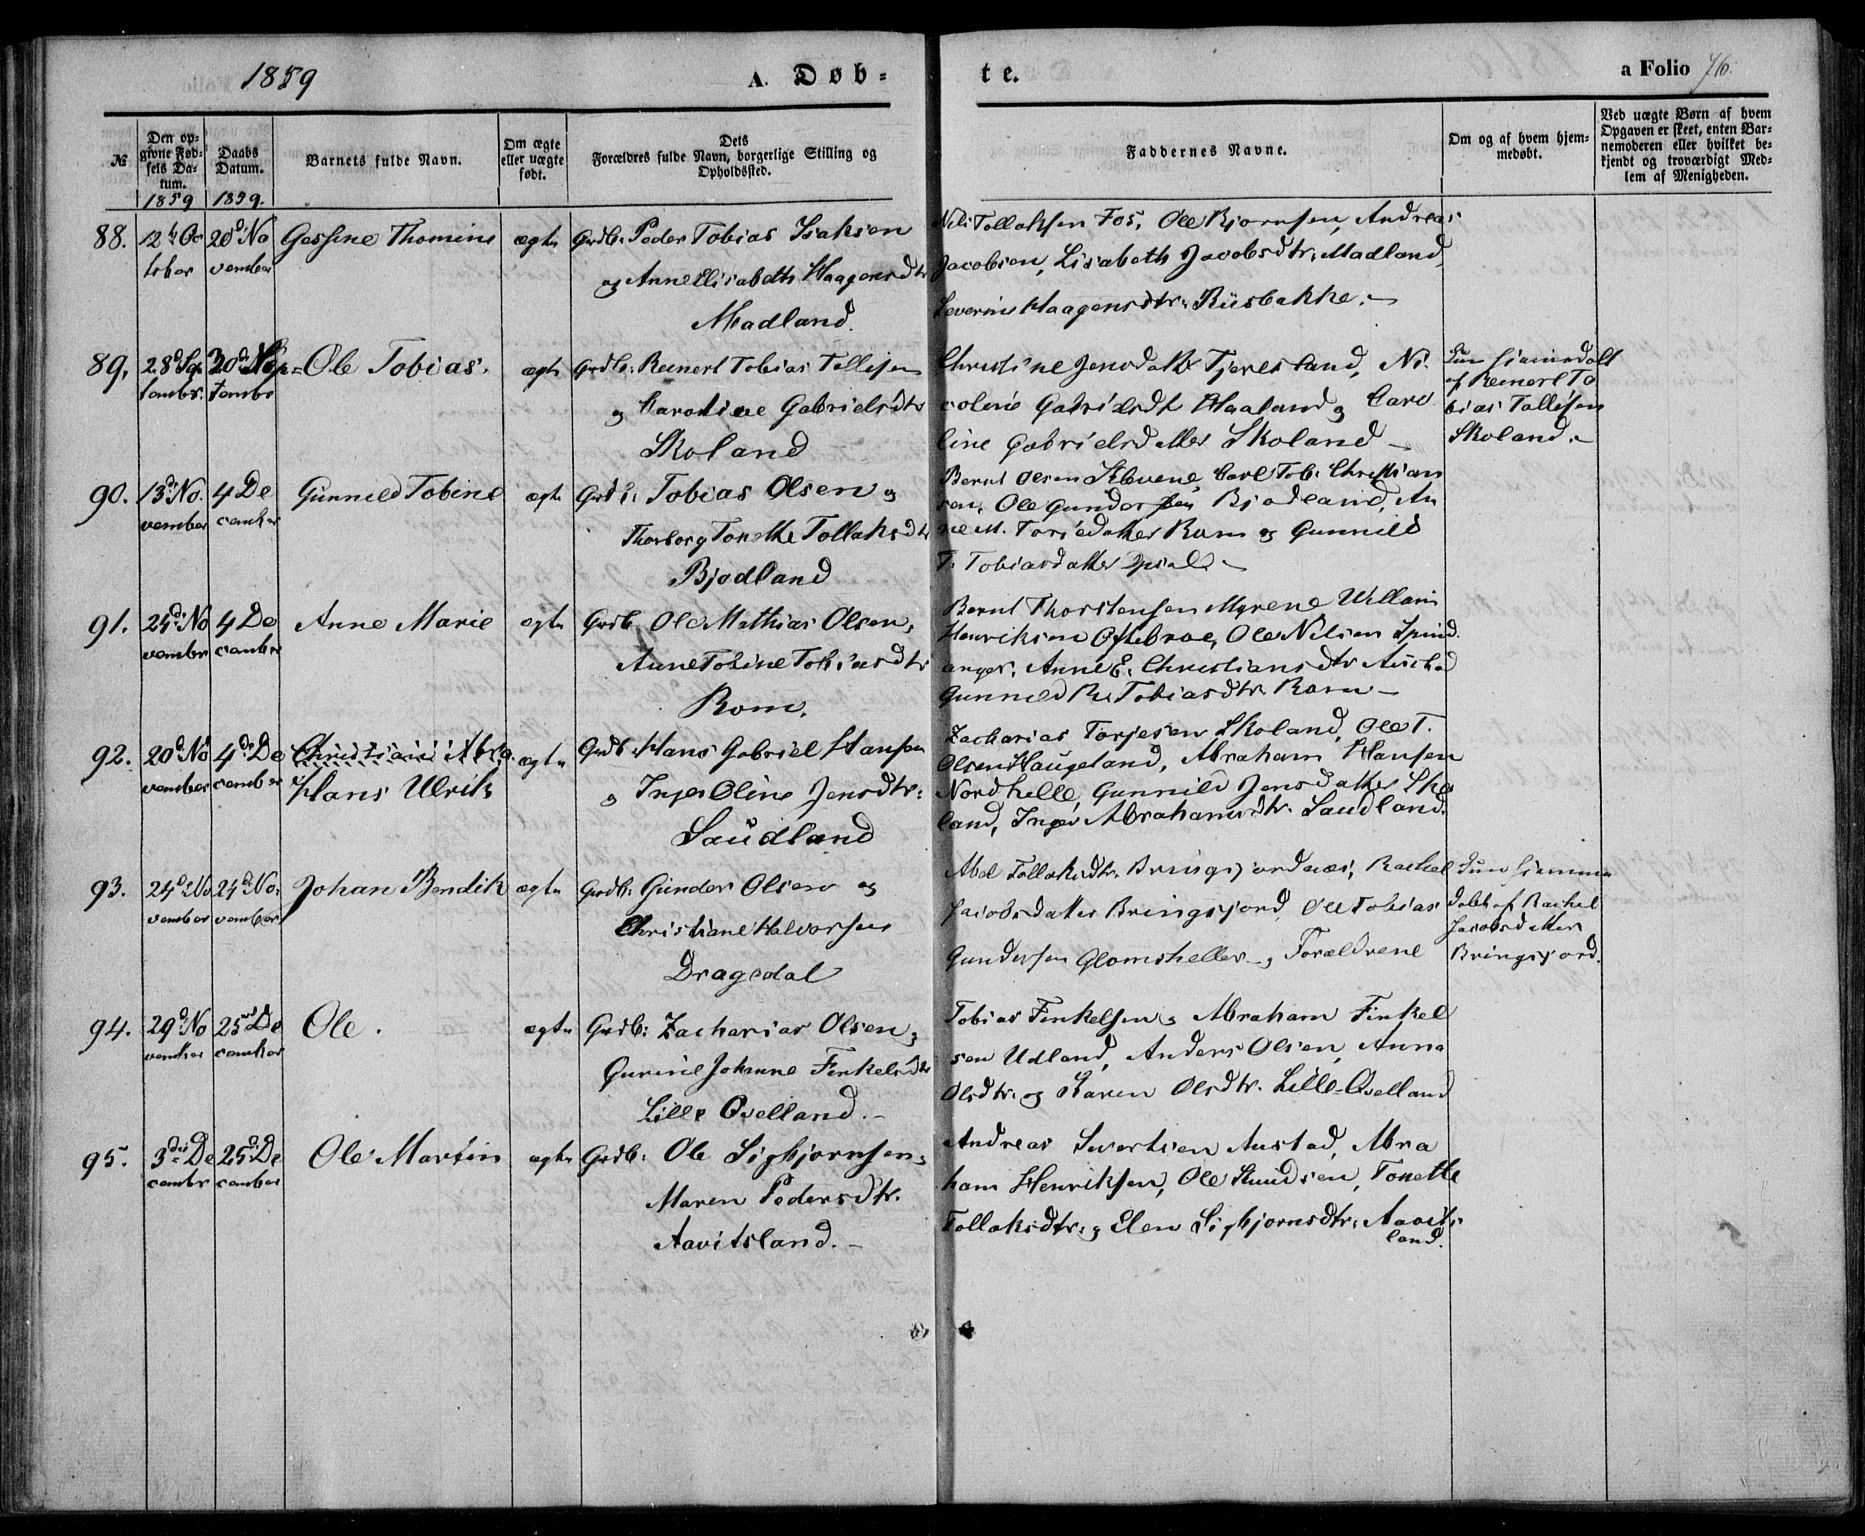 1859
A. Døb=
te.
a Folio 76.
№
Den op=
givne Fød=
sels Da=
tum.
1859
Daabs
Datum.
1859.
Barnets fulde Navn.
Om ægte
eller uægte
født.
Dets
Forældres fulde Navn, borgerlige Stilling og
Opholdssted.
Faddernes Navne.
Om og af hvem hjem=
medøbt.
Ved uægte Børn af hvem
Opgaven er skeet, enten Bar=
nemoderen eller hvilket be=
kjendt og troværdigt Med=
lem af Menigheden.
88.
12te Oc
tober
20d No
vember
Gessine Thomine
ægte
Grdb: Peder Tobias Isaksen
og Anne Elisabeth Haagensdtr
Madland.
Nils Tollaksen Fos, Ole Bjornsen, Andreas
Jacobsen, Lisabeth Jacobsdtr. Madland,
Severine Haagensdtr. Riisbakke. –
89.
28d Sep
tembr.
Ole Tobias.
ægte
Grdb: Reinert Tobias Tollisen
og Caroline Gabrielsdtr
Skoland
Christine Jensdatter Tjersland, Ni
coline Gabrielsdt Haaland og Caro
line Gabrielsdatter Skoland –
af Reinert To
bias Tollisen
Skoland. –
90.
13de No.
vember
4 De
cember
Gunnild Tobine
ægte
Grdb: Tobias Olsen og
Thorborg Tonette Tollaksdtr
Bjodland
Bernt Olsen Klevene, Carl Tob. Christian
sen, Ole Gundersen Bjodland, An
ne M. Torjesdatter Rom og Gunnild
T. Tobiasdatter –
91.
24d No
vembr
4 De
cember
Anne Marie
ægte
Grdb. Ole Mathias Olsen,
Anne Tobine Tobiasdtr
Rom.
Bernt Thorstensen Myrene Willam
Henriksen Oftebroe, Ole Nilsen Spind
anger, Anne E. Christiansdtr Austad
Gunnild R. Tobiasdtr. Rom –
92.
20d No
vember
4de De
cember
Hans Ulrik
ægte
Grdb. Hans Gabriel Hansen
og Inger Oline Jensdtr:
Saudland
Zacharias Torjesen Skoland, Ole T.
Olsen Haugeland, Abraham Hansen
Nordhelle, Gunnild Jensdatter Sko
land, Inger Abrahamsdtr. Saudland.
93.
24d No
vember
24d No.
vember
Johan Bendik
ægte
Grdb: Gunder Olsen og
Christiane Halvorsen
Dragedal
Abel Tollaksdtr. Bringsjordnæs, Rachel
Jacobsdatter Bringsjord, Ole Tobias
Gundersen Glomsheller og Forældrene
døbt af Rachel
Jacobsdatter
Bringsjord.
94.
29d No
vember
25de De
cember
Ole.
ægte
Grdb: Zacharias Olsen,
Gurine Johanne Finkelsdtr
Lille Qvelland. –
Tobias Finkelsen og Abraham Finkel
sen Udland, Anders Olsen, Anna
Olsdtr. og Karen Olsdtr. Lille-Qvelland
95.
3die De
cembr
25de De
cember
Ole Martin
ægte
Grdb: Ole Sigbjornsen,
Maren Pedersdtr.
Aavitsland. –
Andreas Svertsen Austad, Abra
ham Henriksen, Ole Knudsen, Tonette
Tollaksdtr. og Elen Sigbjornsdtr. Aavits
land.